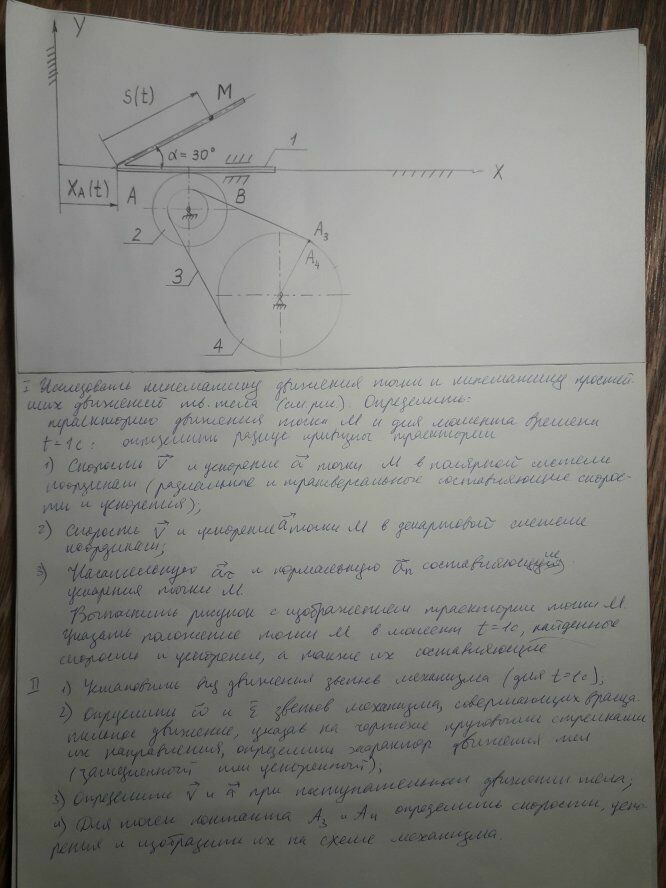 Y
S(t)
M
α=30°
1
X
X_A(t)
A
B
2
A₃
3
A₄
4
I Исследовать кинематику движения точки и кинематику простей-
ших движений тв. тела (см. рис). Определить:
траекторию движения точки M и для момента времени
t=1c: определить радиус кривизны траектории
1) Скорость V и ускорение a точки M в полярной системе
координат (радиальные и трансверсальные составляющие скорос-
ти и ускорения);
2) Скорость V и ускорение a точки M в декартовой системе
координат;
3) Касательную aτ и нормальную an составляющие
ускорения точки M.
Выполнить рисунок с изображением траектории точки M.
Указать положение точки M в момент t=1c, найденные
скорости и ускорение, а также их составляющие
II 1) Установить вид движения звеньев механизма (для t=1c);
2) Определить ω и ε звеньев механизма, совершающих враща-
тельное движение, указав на чертеже круговыми стрелками
их направления, определить характер движения тел
(замедленный или ускоренный);
3) Определить V и a при поступательном движении тела;
4) Для точек контакта A₃ и A₄ определить скорости, уско-
рения и изобразить их на схеме механизма.